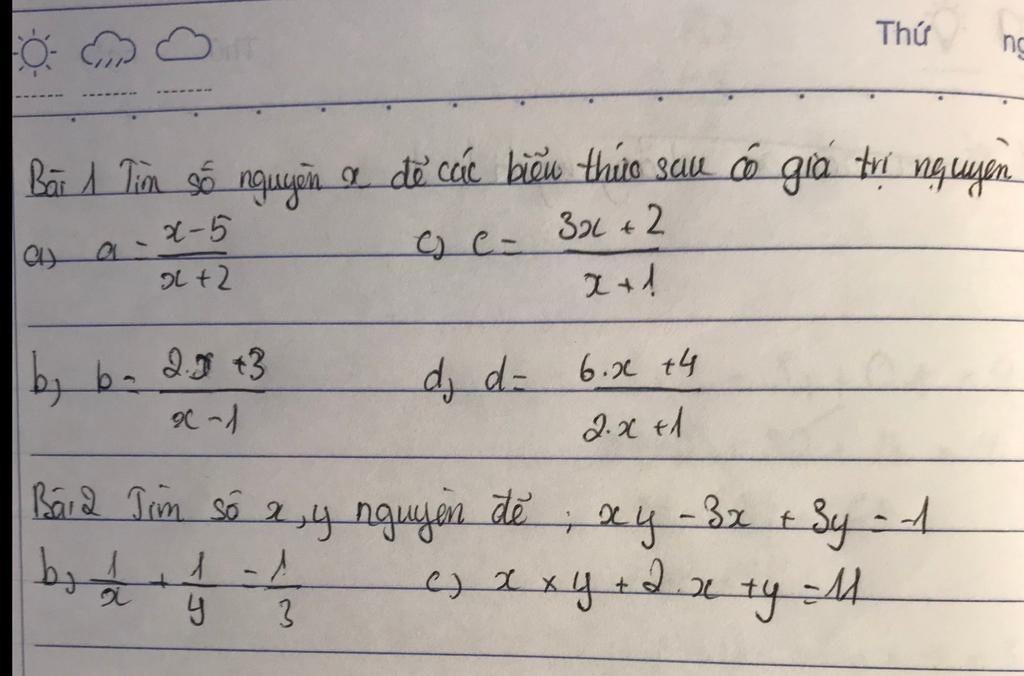 Thứ ng
Bài 1 Tìm số nguyên x để các biểu thức sau có giá trị nguyên
a) a = \frac{x-5}{x+2} c) c = \frac{3x+2}{x+1}
b) b = \frac{2.x+3}{x-1} d) d = \frac{6.x+4}{2.x+1}
Bài 2 Tìm số x, y nguyên để ; xy - 3x + 3y = -1
b) \frac{1}{x} + \frac{1}{y} = \frac{1}{3} c) x × y + 2.x + y = 11